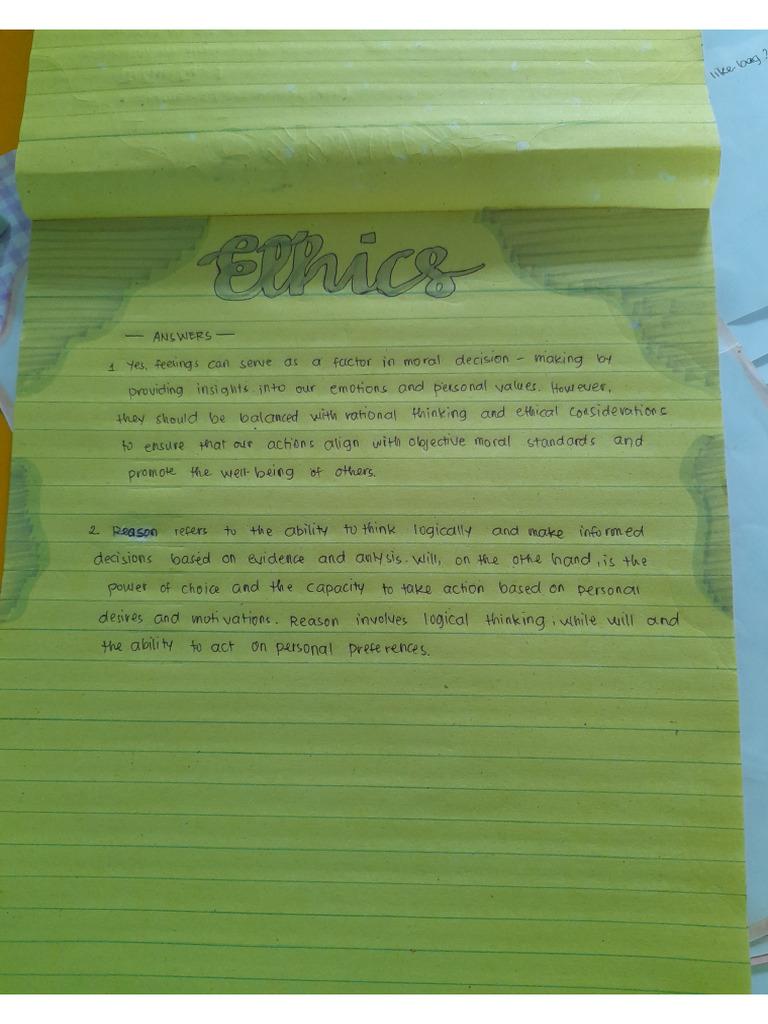 like bag?
Ethics
— ANSWERS —
1 Yes, feelings can serve as a factor in moral decision - making by
providing insights into our emotions and personal values. However,
they should be balanced with rational thinking and ethical considerations
to ensure that our actions align with objective moral standards and
promote the well-being of others.
2. Reason refers to the ability to think logically and make informed
decisions based on evidence and anlysis. Will, on the othe hand, is the
power of choice and the capacity to take action based on personal
desires and motivations. Reason involves logical thinking, while will and
the ability to act on personal preferences.